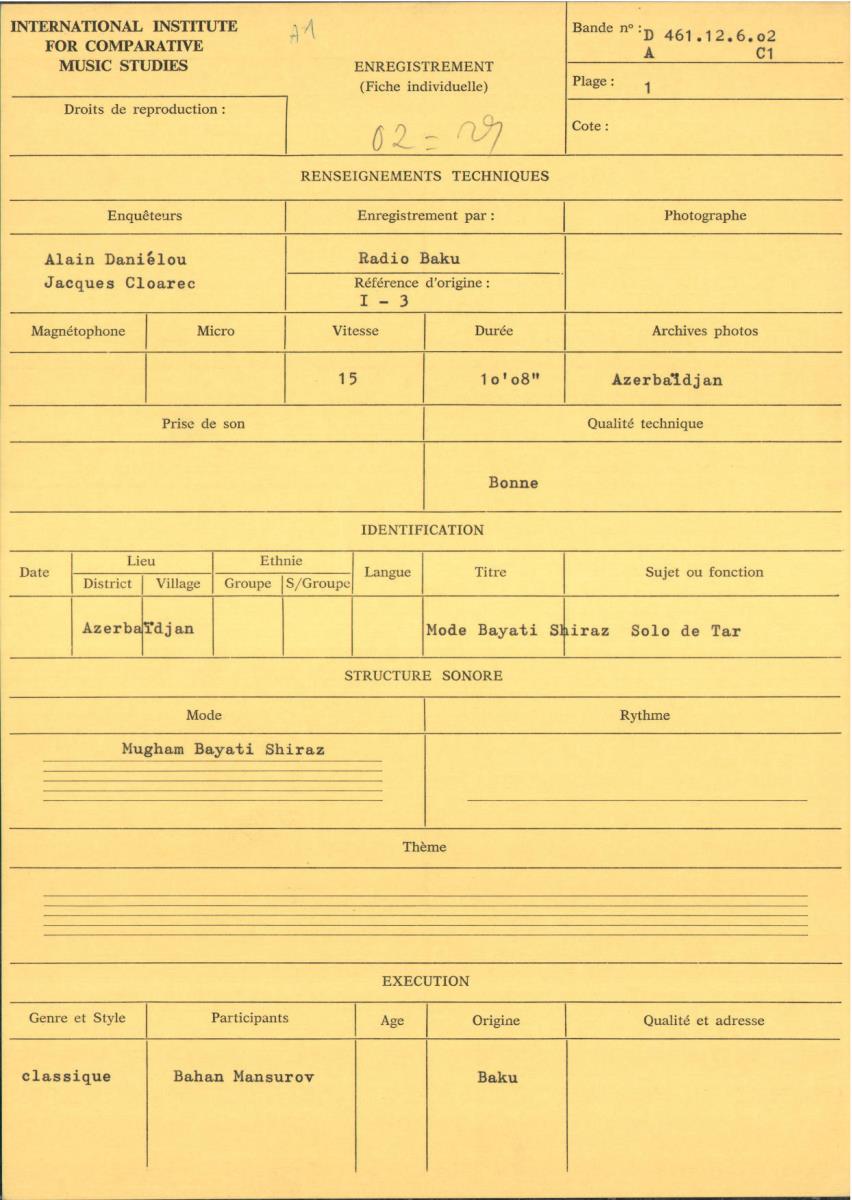 INTERNATIONAL INSTITUTE
FOR COMPARATIVE
MUSIC STUDIES
A1
Droits de reproduction :
ENREGISTREMENT
(Fiche individuelle)
02 =
Bande nº : D 461.12.6.o2
A C1
Plage : 1
Cote :
RENSEIGNEMENTS TECHNIQUES
Enquêteurs Enregistrement par : Photographe
Alain Daniélou
Jacques Cloarec
Radio Baku
Référence d'origine :
I - 3
Magnétophone Micro Vitesse Durée Archives photos
15 1o'o8" Azerbaïdjan
Prise de son Qualité technique
Bonne
IDENTIFICATION
Date Lieu Ethnie Langue Titre Sujet ou fonction
District Village Groupe S/Groupe
Azerbaïdjan Mode Bayati Shiraz Solo de Tar
STRUCTURE SONORE
Mode Rythme
Mugham Bayati Shiraz
Thème
EXECUTION
Genre et Style Participants Age Origine Qualité et adresse
classique Bahan Mansurov Baku